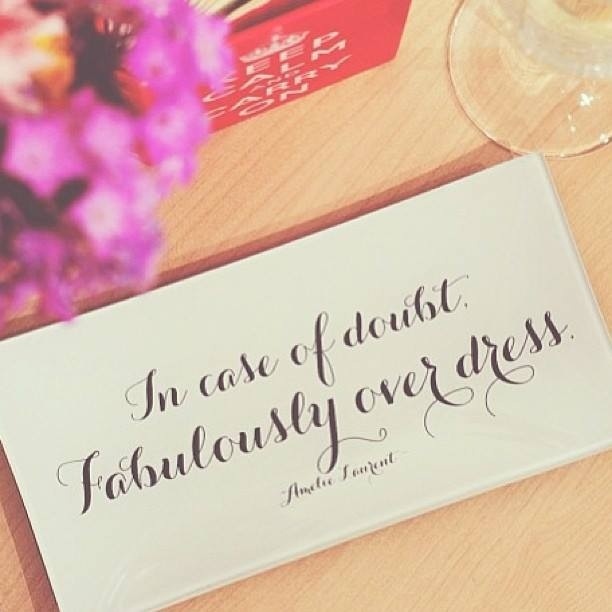 KEEP
CALM
AND
CARRY
ON
In case of doubt,
Fabulously over dress.
Amelie Laurent